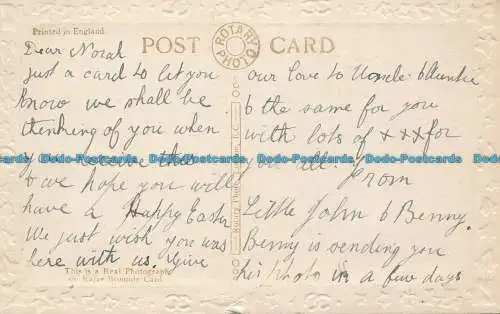 Printed in England.
POST CARD
ROTARY PHOTO
Dear Norah
just a card to let you
know we shall be
thenking of you when
you receive this
& we hope you will
have a Happy Easter
We just wish you was
here with us. Give
This is a Real Photograph
on Rajar Bromide Card
Rotary Photo
E.C.
our love to Uncle & Auntie
& the same for you
with lots of x x x for
you all.
From
Little John & Benny.
Benny is sending you
his photo in a few days
Dodo-Postcards Dodo-Postcards Dodo-Postcards Dodo-Postcards Dodo-Postcards